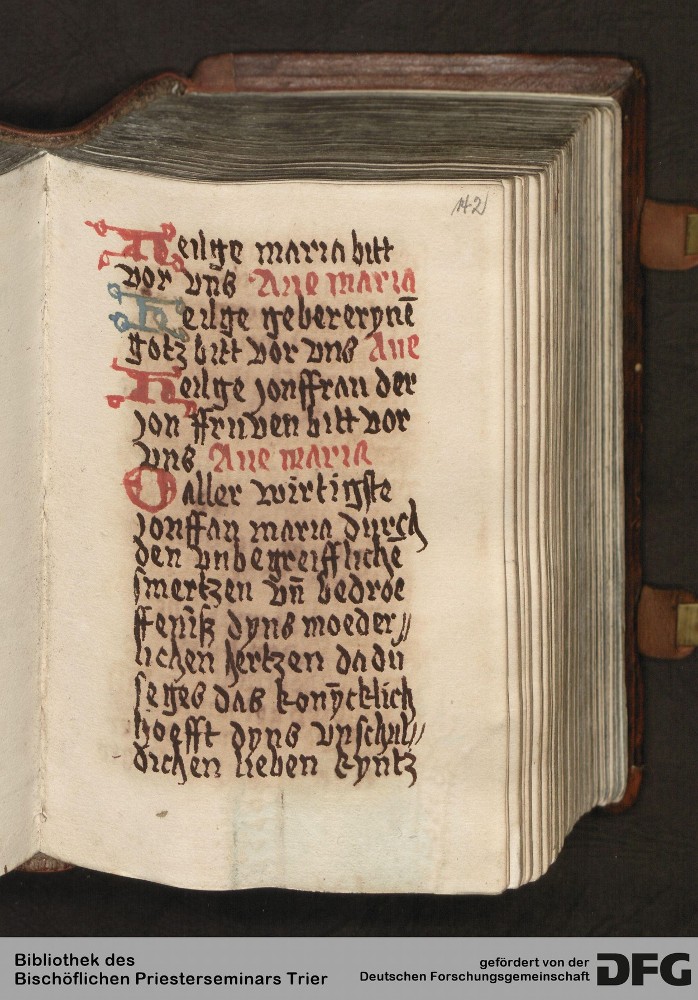 142
Heilge maria bitt
vor vnß Aue maria
Heilge gebererynē
gotz bitt vor vnß Aue
Heilge jonffrau der
jon ffruven bitt vor
vnß Aue maria
O aller wirtigste
jonffan maria durch
den vnbegreifflichē
smertzen vn̄ bedroe
ffenīß dynß moeder//
lichen hertzen da dū
segeß das konȳcklich
hoefft dynß vnschul//
dichen lieben kyntz
Bibliothek des
Bischöflichen Priesterseminars Trier
gefördert von der
Deutschen Forschungsgemeinschaft
DFG